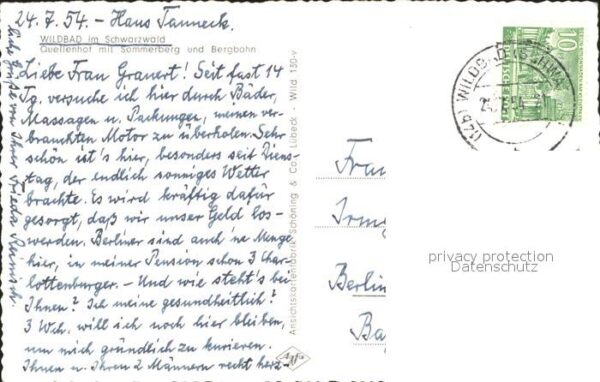 24.7.54. - Haus Tanneck.
WILDBAD im Schwarzwald
Quellenhof mit Sommerberg und Bergbahn
Liebe Frau Granert! Seit fast 14
Tg. versuche ich hier durch Bäder,
Massagen u. Packungen, meinen ver-
brauchten Motor zu überholen. Sehr
schön ist's hier, besonders seit Diens-
tag, der endlich sonniges Wetter
brachte. Es wird kräftig dafür
gesorgt, daß wir unser Geld los-
werden. Berliner sind auch 'ne Menge
hier, in meiner Pension schon 3 Char-
lottenburger. - Und wie steht's bei
Ihnen? Ich meine gesundheitlich?
3 Wch. will ich noch hier bleiben,
um mich gründlich zu kurieren.
Ihnen u. Ihren 2 Männern recht herz-
Grüße von Ihrer Frieda
Ansichtskartenfabrik Schöning & Co., Lübeck - Wild 130-v
10
WILDBAD (SCHWARZW)
Frau
Irmg
Berlin
privacy protection
Datenschutz